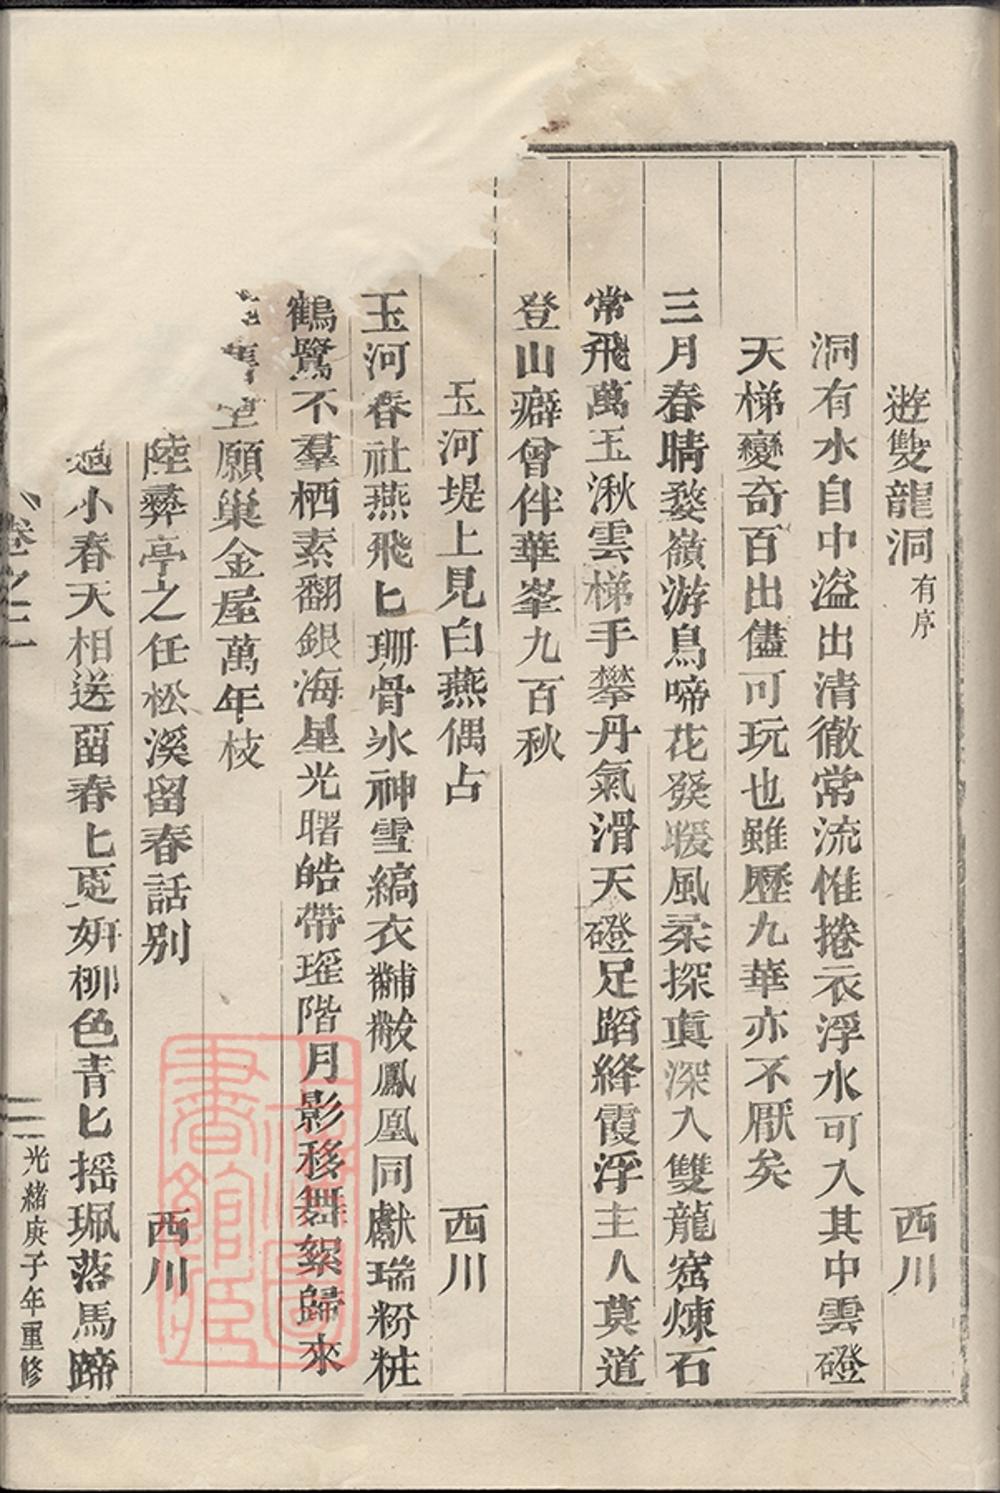 遊雙龍洞有序 西川
洞有水自中溢出清徹常流惟捲衣浮水可入其中雲磴
天梯變奇百出儘可玩也雖歷九華亦不厭矣
三月春晴婺嶺游鳥啼花發暖風柔探眞深入雙龍窟煉石
常飛萬玉湫雲梯手攀丹氣滑天磴足蹈絳霞浮主人莫道
登山癖曾伴華峯九百秋
玉河堤上見白燕偶占 西川
玉河春社燕飛匕珊骨氷神雪縞衣黼黻鳳凰同獻瑞粉粧
鶴鷺不羣栖素翻銀海星光曙皓帶瑶階月影移舞絮歸來
願巢金屋萬年枝
陸彝亭之任松溪留春話別 西川
過小春天相送畱春匕更妍柳色青匕摇珮落馬蹄
卷之二
光緒庚子年重修